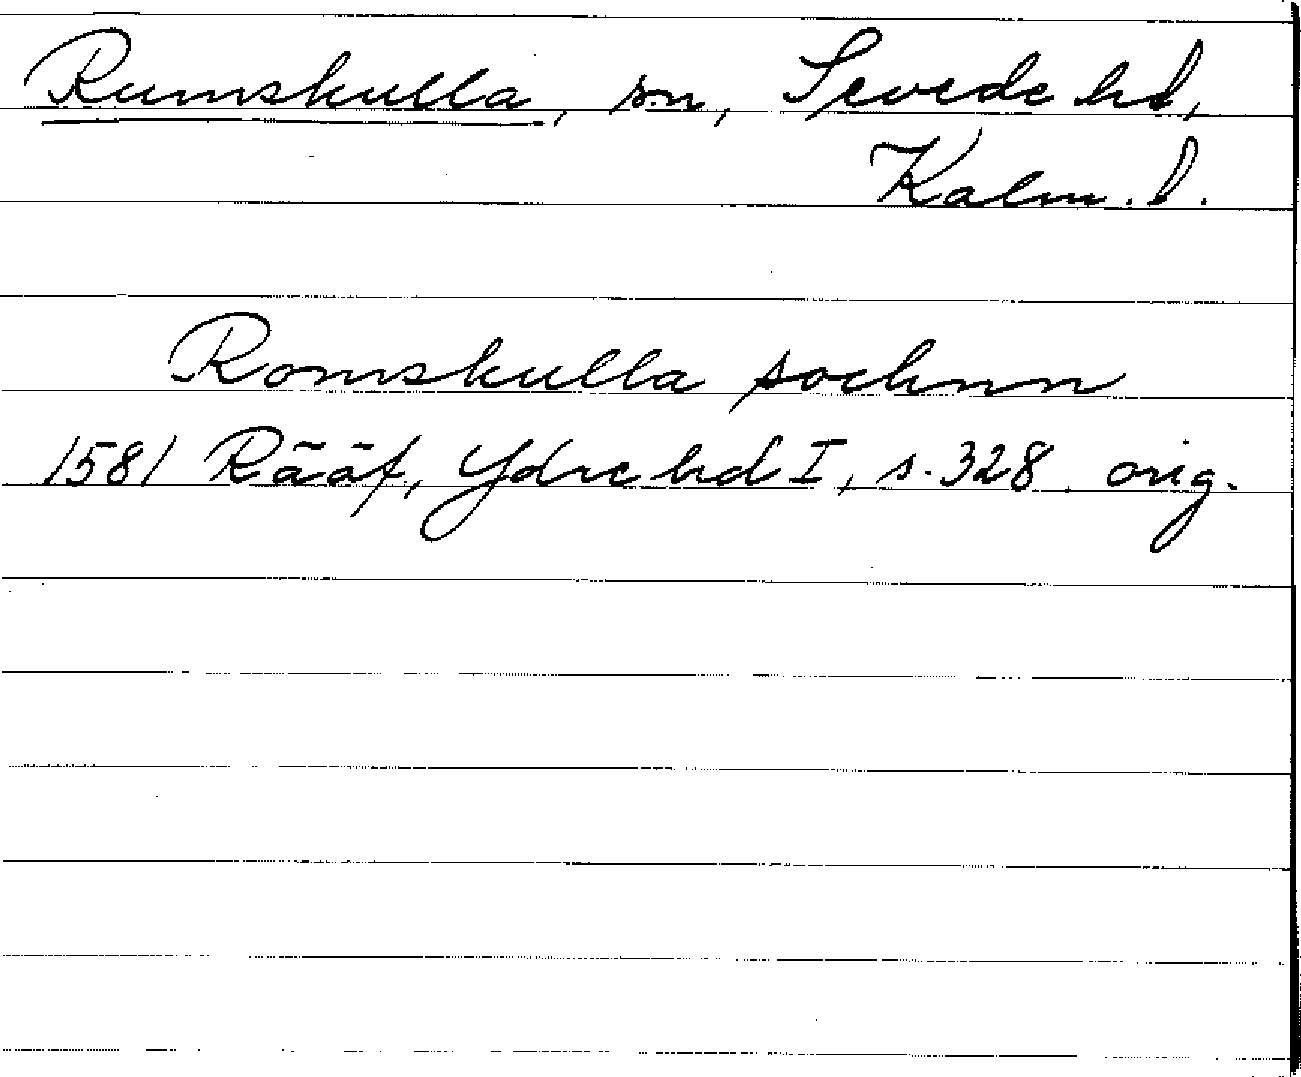 Rumskulla, sn, Sevede hd,
Kalm. l.
Romskulla sochnn
1581 Rääf, Ydre hd I, s. 328. orig.